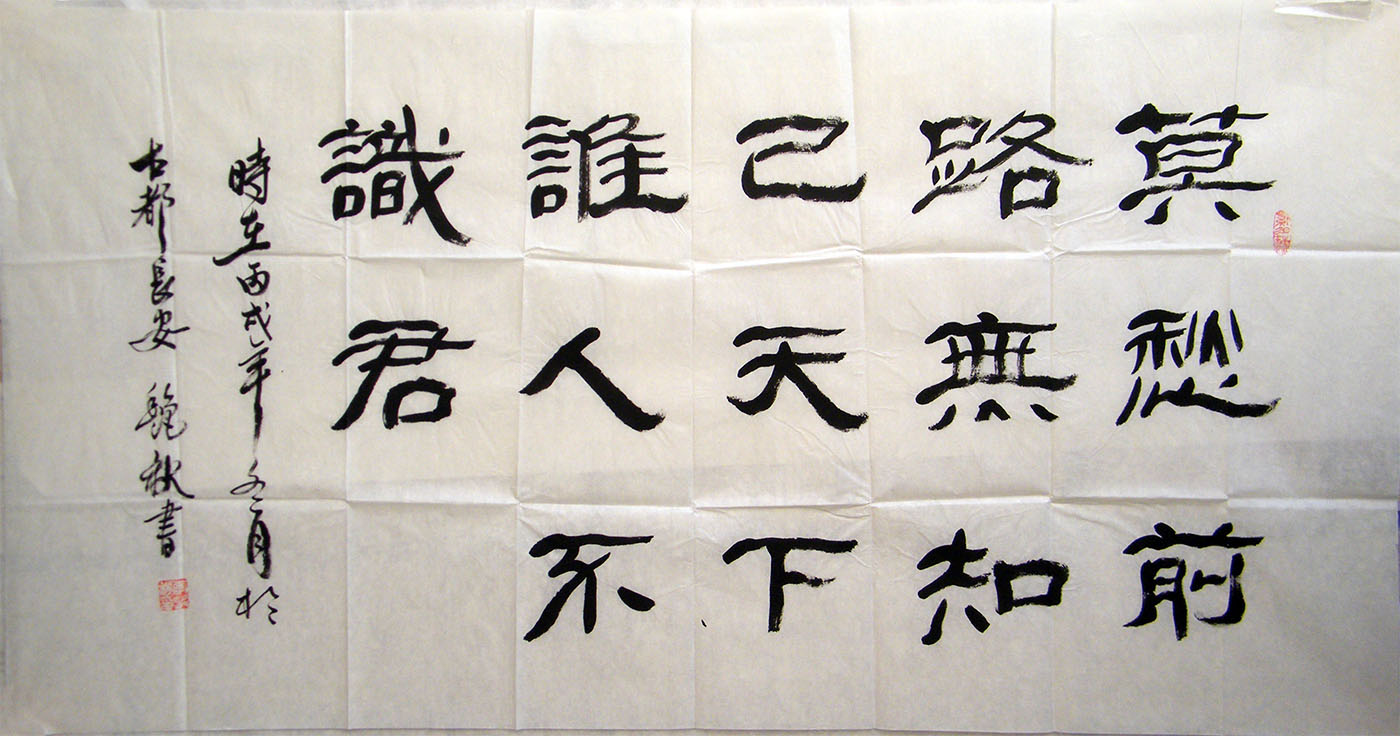 莫愁前
路無知
己天下
誰人不
識君
時在丙戌年冬月於
古都長安 鮑秋書